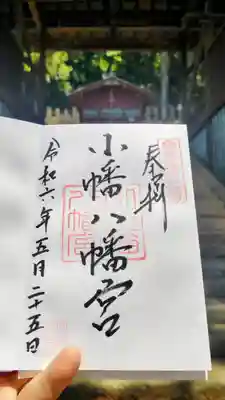 奉拝
小幡八幡宮
令和六年五月二十五日